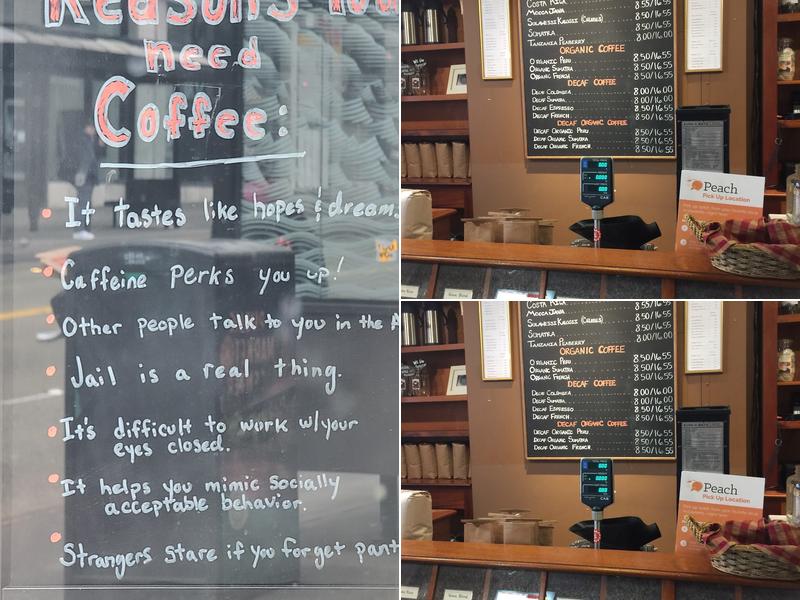 Reasons You
need
Coffee:
It tastes like hopes & dream
Caffeine perks you up!
Other people talk to you in the A
Jail is a real thing.
It's difficult to work w/your
eyes closed.
It helps you mimic socially
acceptable behavior.
Strangers stare if you forget pant
Costa Rica 8.50/16.55
Mocca Java 8.50/16.55
Sulawesi Kalossi (Celebes) 8.50/16.55
Sumatra 8.50/16.55
Tanzania Peaberry 8.00/16.00
ORGANIC COFFEE
Organic Peru 8.50/16.55
Organic Sumatra 8.50/16.55
Organic French 8.50/16.55
DECAF COFFEE
Decaf Colombia 8.00/16.00
Decaf Sumatra 8.00/16.00
Decaf Espresso 8.50/16.55
Decaf French 8.50/16.55
DECAF ORGANIC COFFEE
Decaf Organic Peru 8.50/16.55
Decaf Organic Sumatra 8.50/16.55
Decaf Organic French 8.50/16.55
Peach
Pick Up Location
Costa Rica 8.55/16.55
Mocca Java 8.50/16.55
Sulawesi Kalossi (Celebes) 8.50/16.55
Sumatra 8.50/16.55
Tanzania Peaberry 8.00/16.00
ORGANIC COFFEE
Organic Peru 8.50/16.55
Organic Sumatra 8.50/16.55
Organic French 8.50/16.55
DECAF COFFEE
Decaf Colombia 8.00/16.00
Decaf Sumatra 8.00/16.00
Decaf Espresso 8.50/16.55
Decaf French 8.50/16.55
DECAF ORGANIC COFFEE
Decaf Organic Peru 8.50/16.55
Decaf Organic Sumatra 8.50/16.55
Decaf Organic French 8.50/16.55
Peach
Pick Up Location